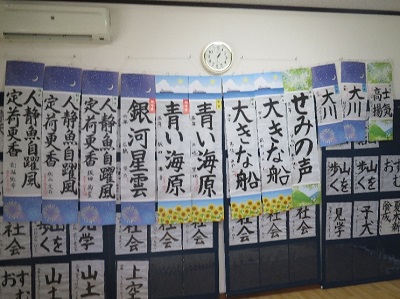 士気
高揚
大川
大川
せみの声
大きな船
大きな船
青い海原
青い海原
銀河星雲
人静魚自躍
風定荷更香
人静魚自躍
風定荷更香
人静魚自躍
風定荷更香
山を
歩く
山を
歩く
子犬
見学
社会
社会
社会
見学
山を
歩く
社会
上空
山土
山土